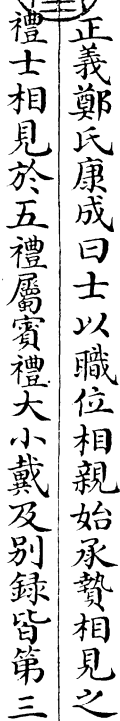 正義鄭氏康成曰士以職位相親始承贄相見之
禮士相見於五禮屬賓禮大小戴及别録皆第三